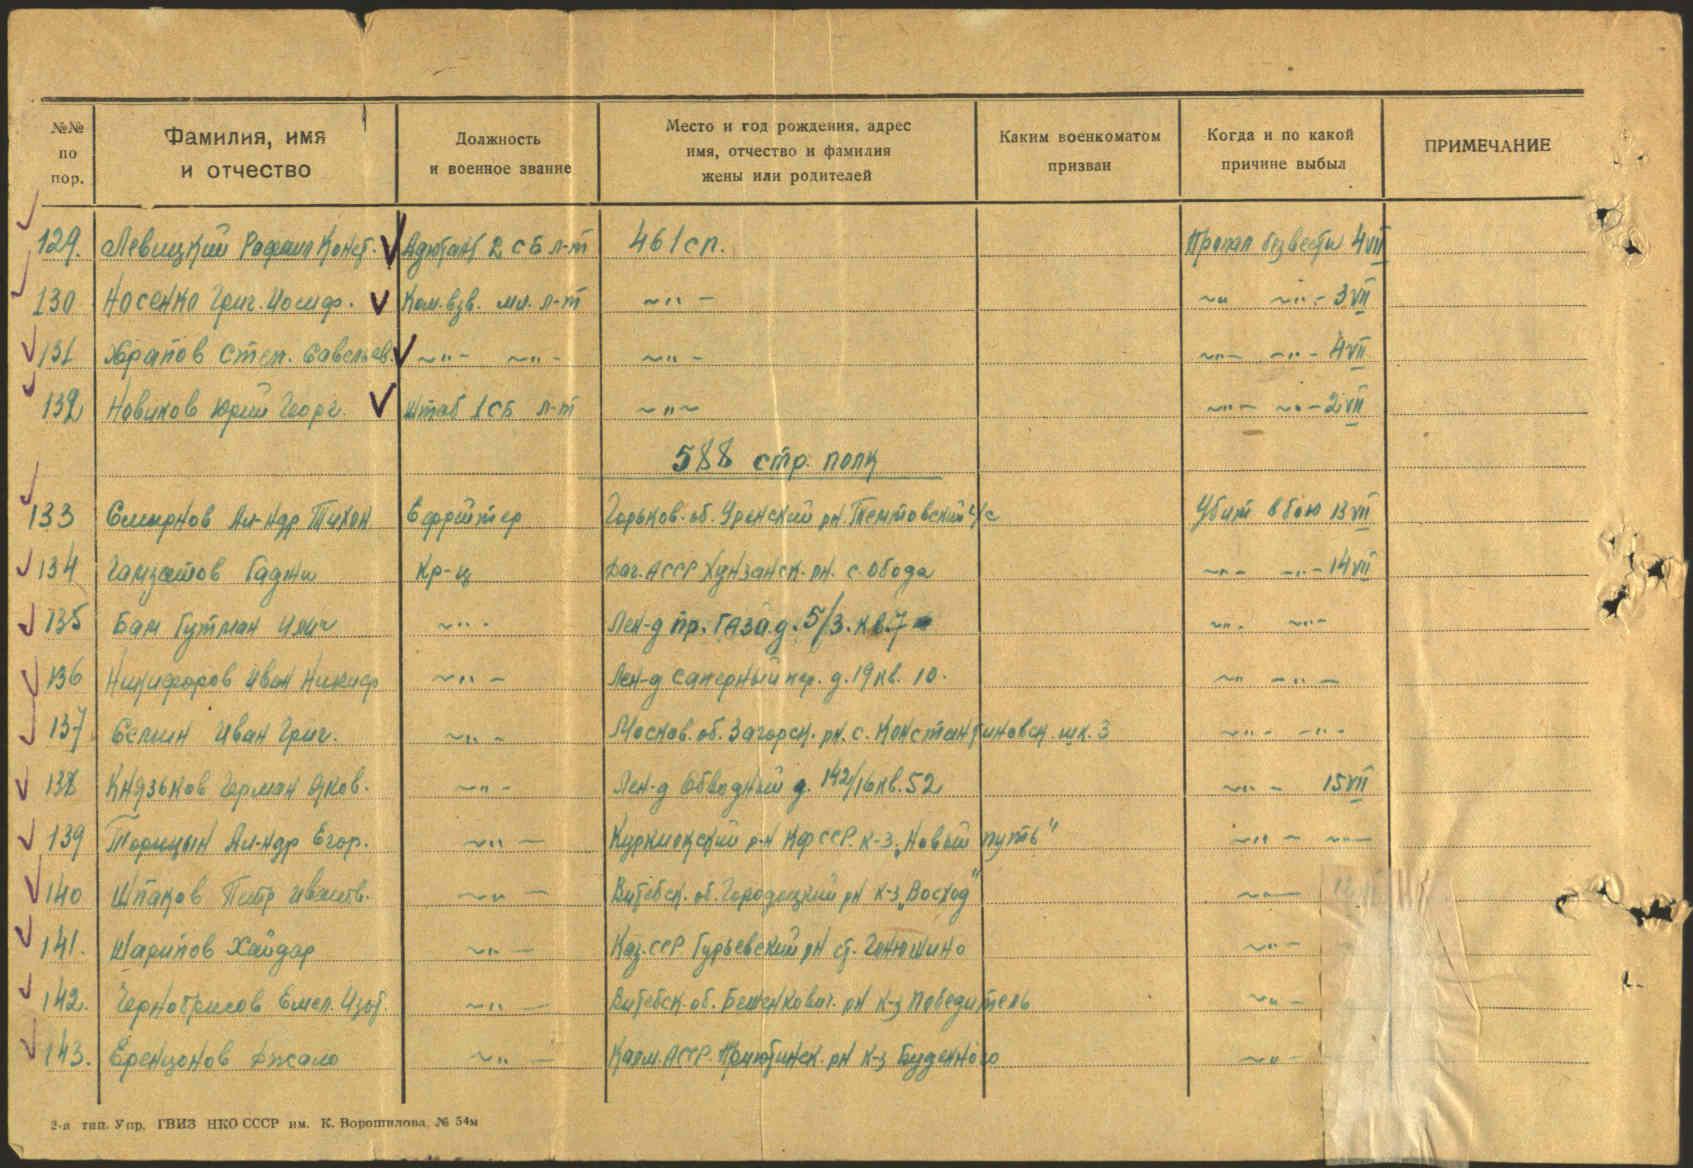 №№ по пор. Фамилия, имя и отчество Должность и военное звание Место и год рождения, адрес имя, отчество и фамилия жены или родителей Каким военкоматом призван Когда и по какой причине выбыл ПРИМЕЧАНИЕ
129. Левицкий Рафаил Конст. Адютант 2 СБ л-т 461 сп. Пропал без вести 4 VII
130 Носенко Григ. Иосиф. Ком. взв. мл. л-т ~"- ~" ~"- 3 VII
131 Храпов Степ. Савельев. ~"- ~"- ~"- ~"- -"- 4 VII
132 Новиков Юрий Георг. Штаб 1 СБ л-т ~"~ ~"- ~"- 2 VII
588 стр. полк
133 Смирнов Ал-ндр Тихон Ефрейтор Горьков. об. Уренский рн. Темтовский с/с Убит в бою 13 VII
134 Гамзатов Гаджи Кр-ц Даг. АССР Хунзанск. рн. с. Обода ~"- -"- 14 VII
135 Бам Гутман Илич ~"- Лен-д пр. ГАЗа д. 5/3. кв. 7 ~"- ~"-
136 Никифоров Иван Никиф ~"- Лен-д Саперный пер. д. 19 кв. 10. ~" -"-
137 Иван Григ. ~"- Москов. об. Загорск. рн. с. Константиновск. шк. 3 ~"- -"-
138 Князьков Герман Яков. ~"- Лен-д Обводный д. 142/16 кв. 52 ~"- 15 VII
139 Ал-ндр Егор. ~"- Куркиокский р-н КФССР. к-з „Новый путь" ~"- ~"-
140 Шпаков Петр Иванов. ~" - Витебск. об. Городокский рн к-з „Восход" ~"-
141. Шарипов Хайдар ~"- Каз. ССР Гурьевский рн ст. ~"-
142. Емел. Изот. ~"- Витебск. об. Бешенкович. рн к-з Победитель ~"-
143. Еренценов Джало ~"- Калм. АССР. Приютинск. рн к-з Буденного ~"-
2-я тип. Упр. ГВИЗ НКО СССР им. К. Ворошилова. № 54м